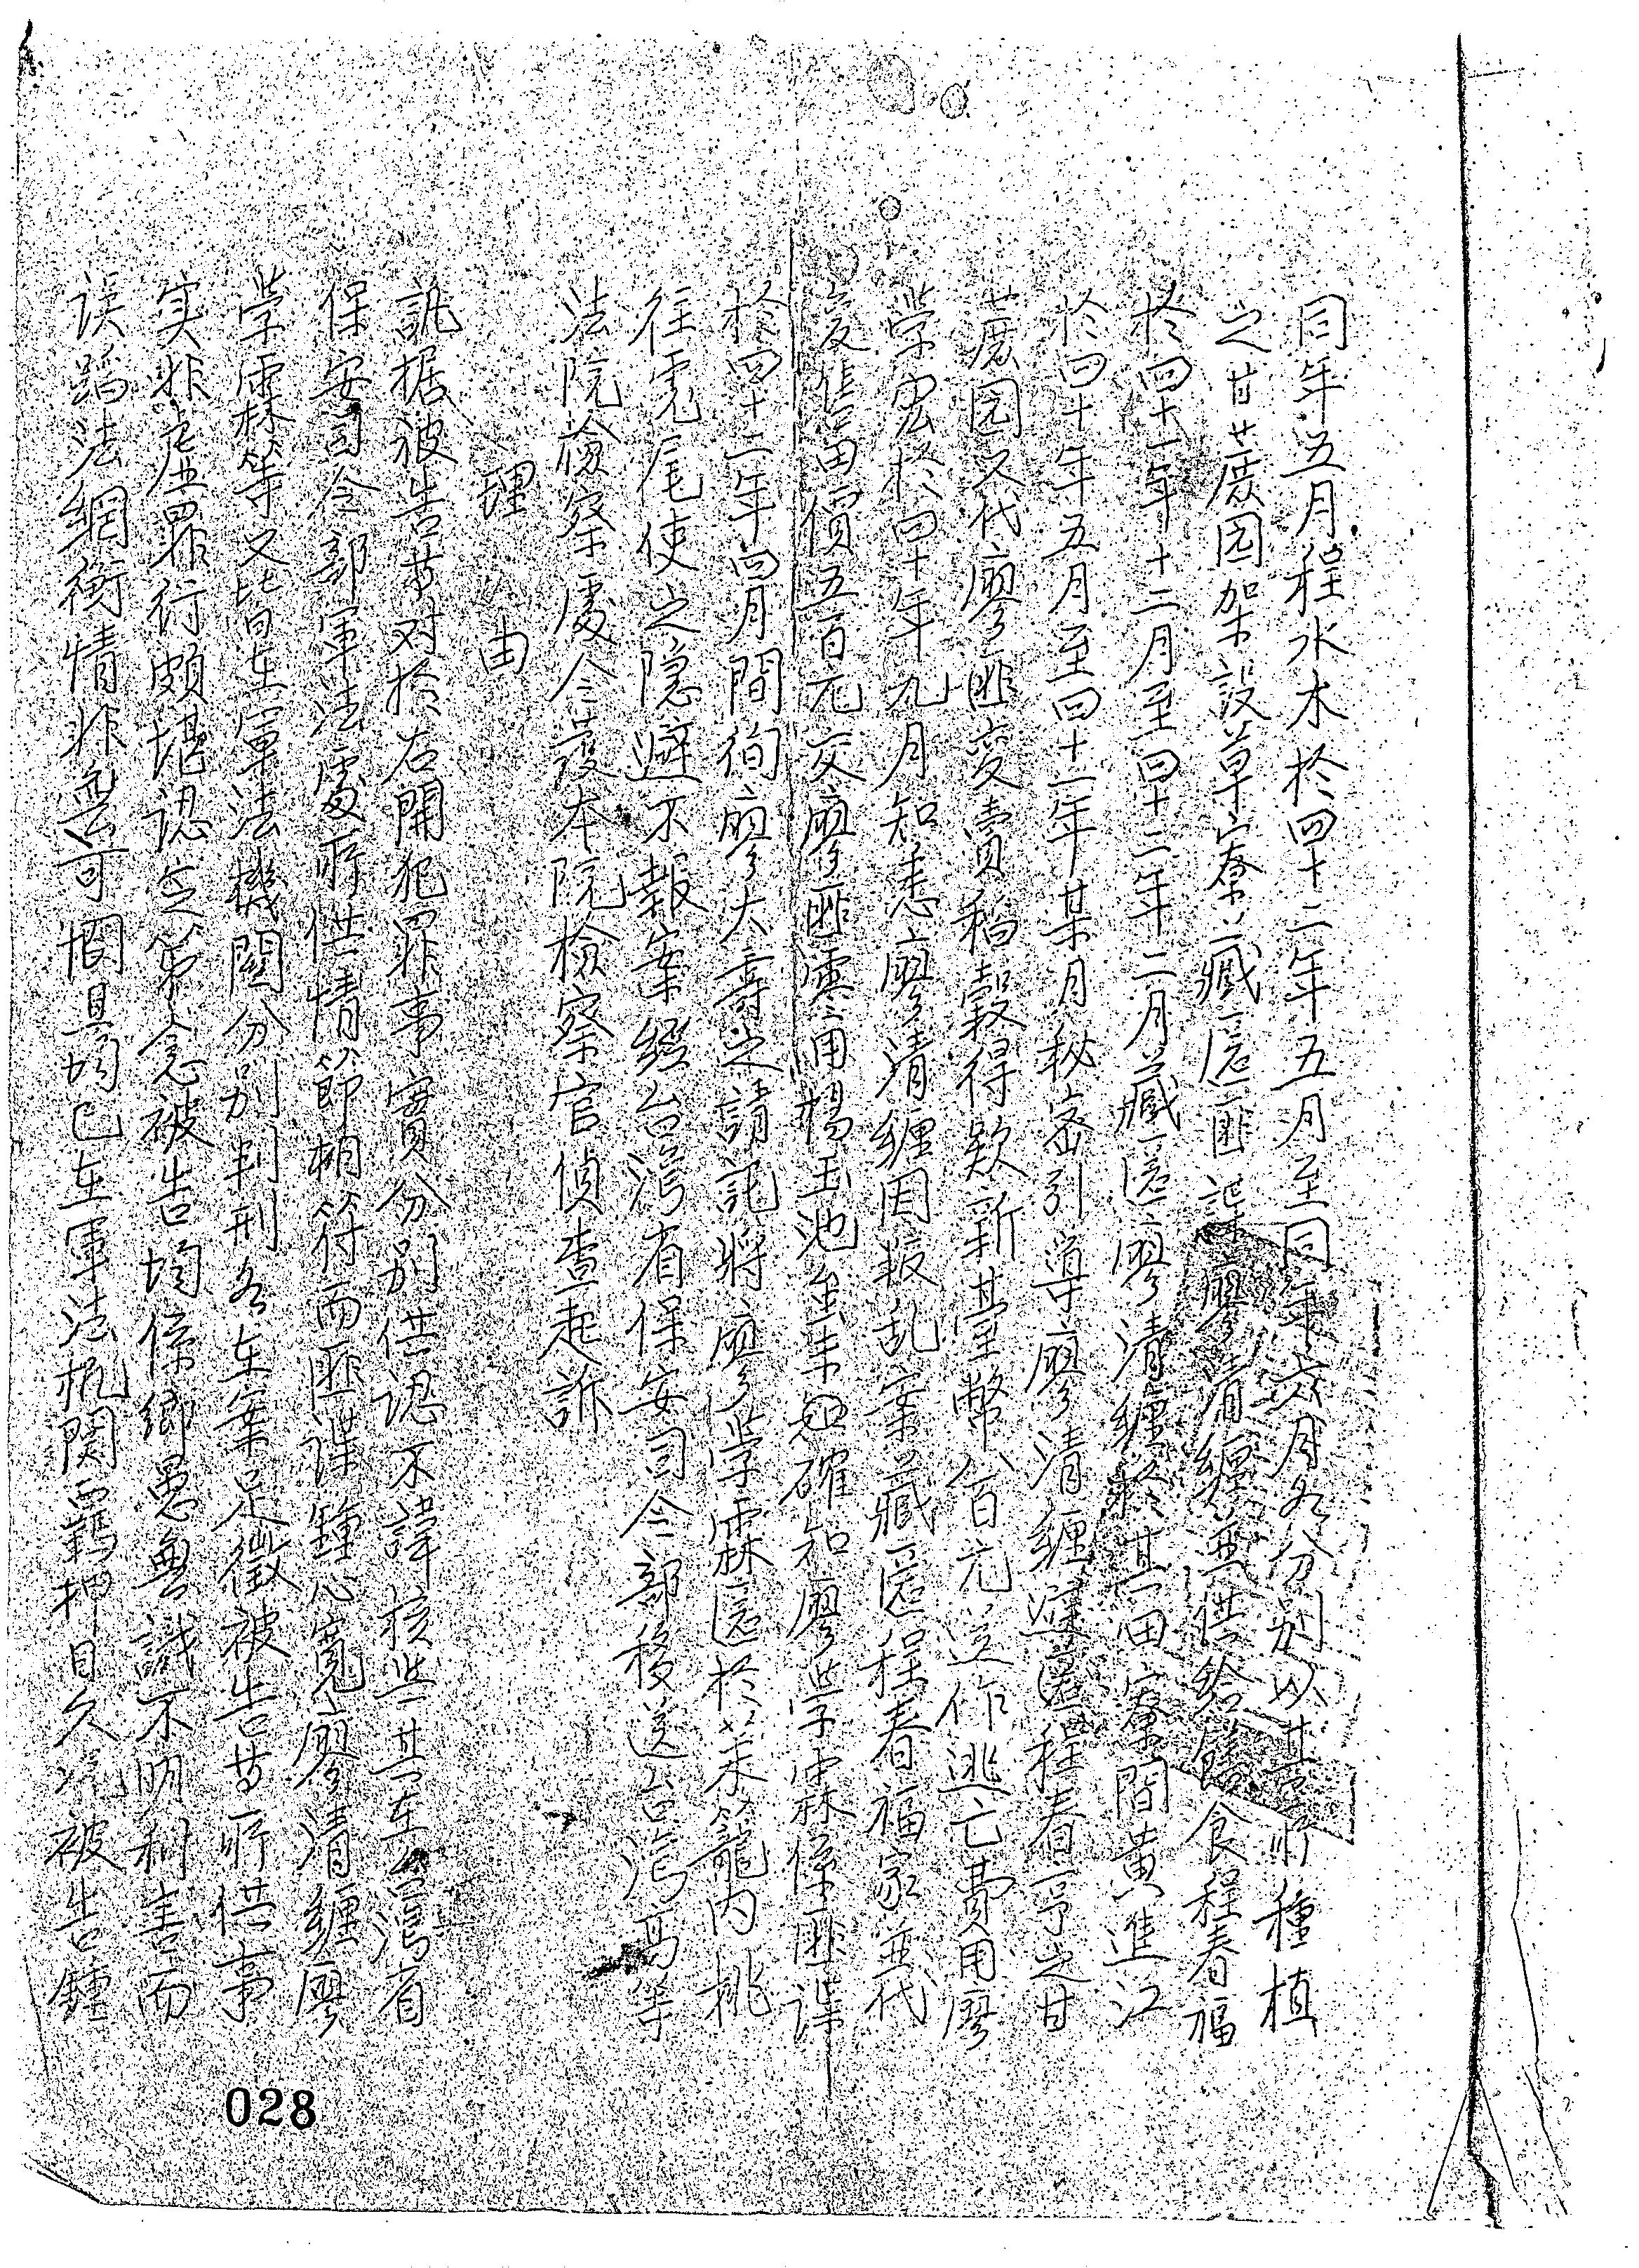 同年五月程水木於四十二年五月至同年六月各分别以其所種植
之甘蔗园架設草寮藏匿匪諜廖清纏並供给饍食程春福
於四十一年十二月至四十二年二月藏匿廖清纏於其田寮間黄進江
於四十年五月至四十一年某月秘密引導廖清纏逃匿程春亨之甘
蔗园又代廖匪变賣稻穀得欵新臺幣八百元送作逃亡費用廖
学宏於四十年九月知悉廖清纏因叛乱案藏匿程春福家並代
变售田價五百元交廖匪零用楊玉池 确知廖学霖係匪諜
於四十二年四月間徇廖大壽之請託將廖学霖匿於茶籠內挑
往虎尾使之隐避不報案經台湾省保安司令部移送台湾高等
法院檢察處令發本院檢察官偵查起訴
理由
訊据被告等对於右開犯罪事實分别供認不諱核与其在台湾省
保安司令部軍法處所供情節相符而匪諜鍾心寬廖清纏廖
学霖等又皆在軍法機關分别判刑各在案足徵被告等所供事
实非虚罪行頗堪認定第念被告均係鄉愚魯識不明利害而
误蹈法網衡情非無可憫且均已在軍法机関羁押日久况被告鍾
028